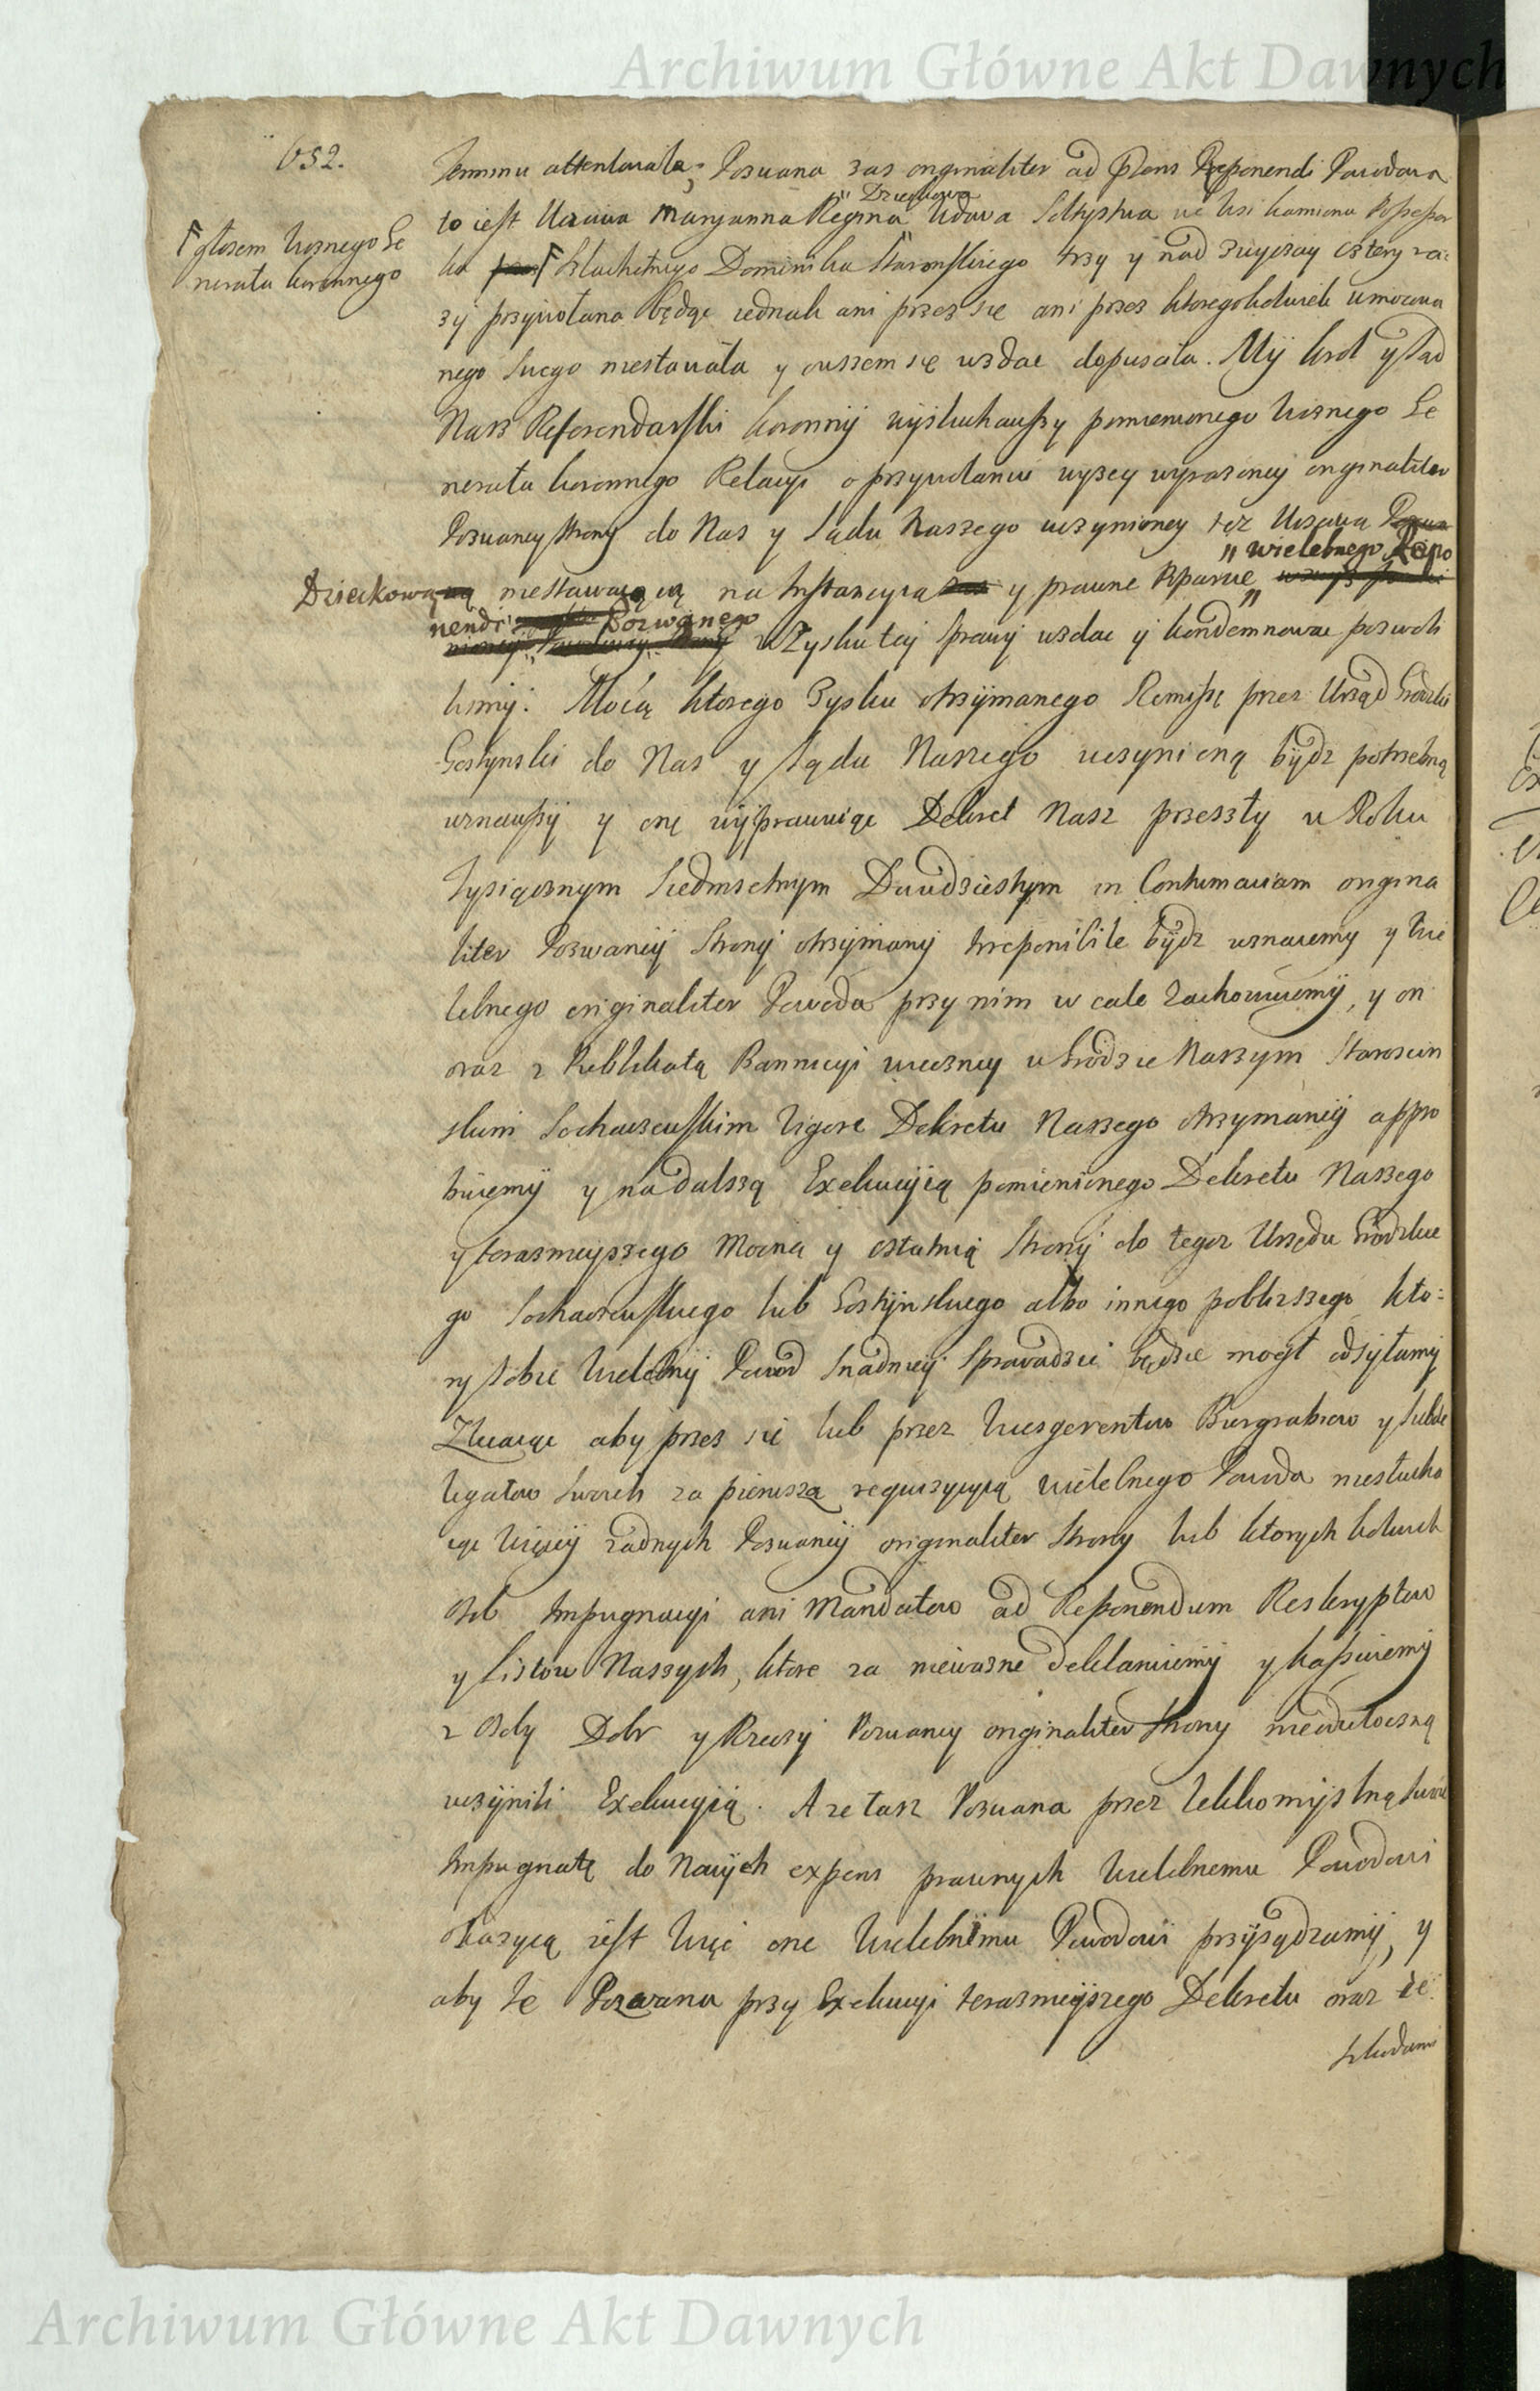 Archiwum Główne Akt Dawnych
652.
Terminu attentowała; Pozwana zas originaliter ad Reponendi Powodowa
Dzieckowa
to iest Uczciwa Maryanna Regina Wdowa Sołtyska we Wsi Kamionu
głosem Woznego Ge
nerała koronnego
ka Szlachetnego Dominika trzy y nad zwyczay cztery ra:
zÿ przywołana będąc iednak ani przez się ani przez ktoregokolwiek umocowa
nego swego niestawała y owszem się wzdac dopusciła. Mÿ Krol y Sąd
Nasz Referendarski koronnÿ wÿsłuchawszy pomienionego Woznego Ge
nerała koronnego Relacyi o przywołaniu wyzey wyrazoney originaliter
Pozwaney strony do Nas y Sądu Naszego uczynioney tęz Uczciwą
" wielebnego Repo
Dzieckową niestawaiącą na Instancyią y prawne Rparcie
nendi Pozwanego
w Zysku tey sprawÿ wzdac ÿ kondemnowac pozwoli
lismÿ: Mocą ktorego Zysku otrzÿmanego Remissę przez Urząd Grodzki
Gostynski do Nas y Sądu Naszego uczynioną bydz potrzebną
uznawszÿ y onę wÿprawuiąc Dekret Nasz przeszłÿ w Roku
Tysiącznym Siedmsetnym Dwudziestym in Contumaciam origina
liter Pozwaneÿ Stronÿ otrzÿmanÿ Irreponibile bÿdz uznaiemy y Wie
lebnego originaliter Powoda przy nim w cale zachowuiemÿ, y on
oraz z Publikatą Bannicyi wieczney w Grodzie Naszym Staroscin
skim Sochaczewskim Vigore Dekretu Naszego otrzymaneÿ appro
buiemÿ y na dalszą Exekucÿią pomienionego Dekretu Naszego
y teraznieyszego Mocna y ostatnią Stronÿ do tegoz Urzędu Grodzkie
go Sochaczewskiego lub Gostÿnskiego albo innego poblizszego kto:
ry sobie Wielebnÿ Powod snadnieÿ sprowadzic będzie mogł odsÿłamÿ
Zlecaiąc aby przez się lub przez Vicesgerentow Burgrabiow y Subde
legatow swoich za pierwszą requizycyią wielebnego Powoda niesłucha
iąc więceÿ zadnych Pozwaneÿ originaliter Strony lub ktorych kolwiek
osob Impugnacyi ani Mandatow ad Reponendum Reskryptow
y Listow Naszych, ktore za niewazne deklaruiemÿ y kassuiemÿ
z Osoby Dobr y Rzeczÿ Pozwaney originaliter strony nieodwłoczną
uczÿnili Exekucyią. A ze taz Pozwana przez lekkomÿslną swoię
Impugnatę do nowÿch expens prawnych Wielebnemu Powodowi
okazyią iest Więc one Wielebnemu Powodowi przÿsądzamÿ, y
aby te Pozwana przy Exekucyi teraznieÿszego Dekretu oraz ze
szkodami
Archiwum Główne Akt Dawnych